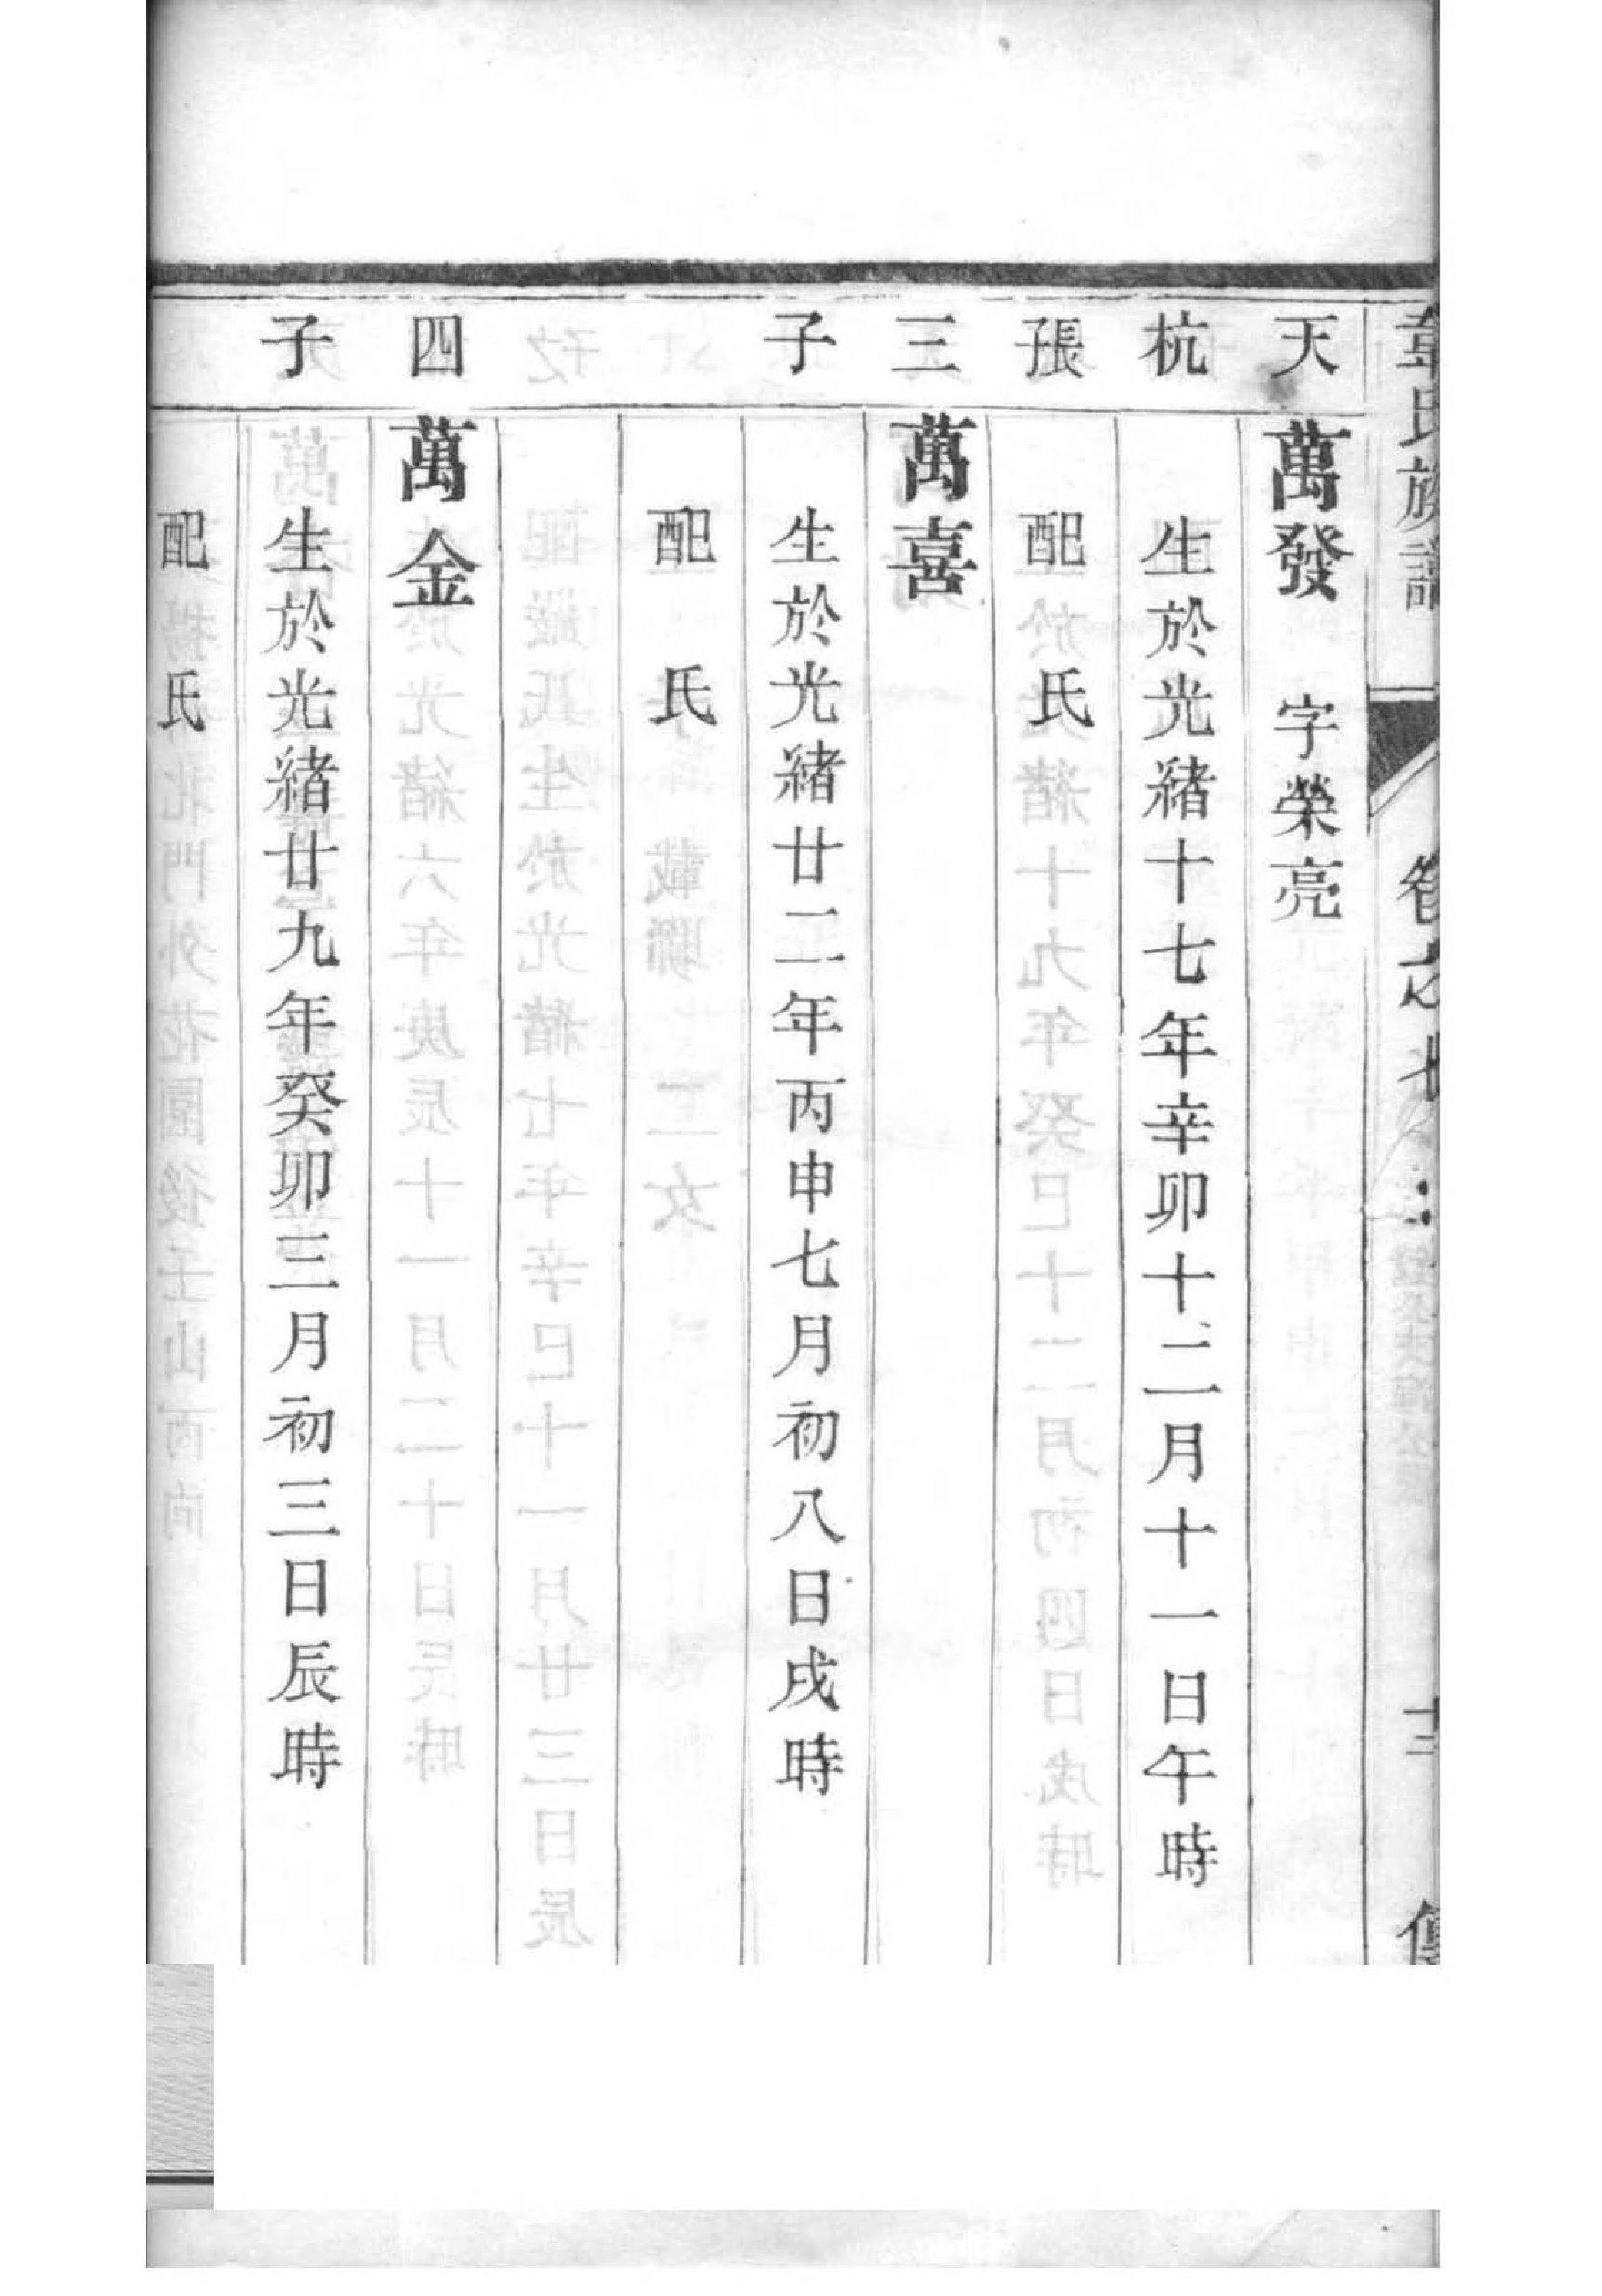 氏族譜 卷之七
天 萬發 字榮亮
杭 生於光緒十七年辛卯十二月十一日午時
長子 配 氏
三 萬喜
子 生於光緒廿二年丙申七月初八日戌時
配 氏
四 萬金
子 生於光緒廿九年癸卯三月初三日辰時
配 氏